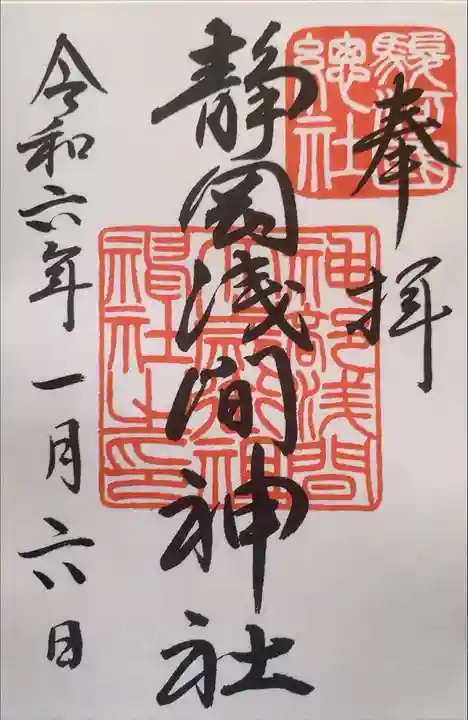 奉拝
駿河國
總社
静岡浅間神社
神部浅間
大歳御祖神
社之印
令和六年一月六日